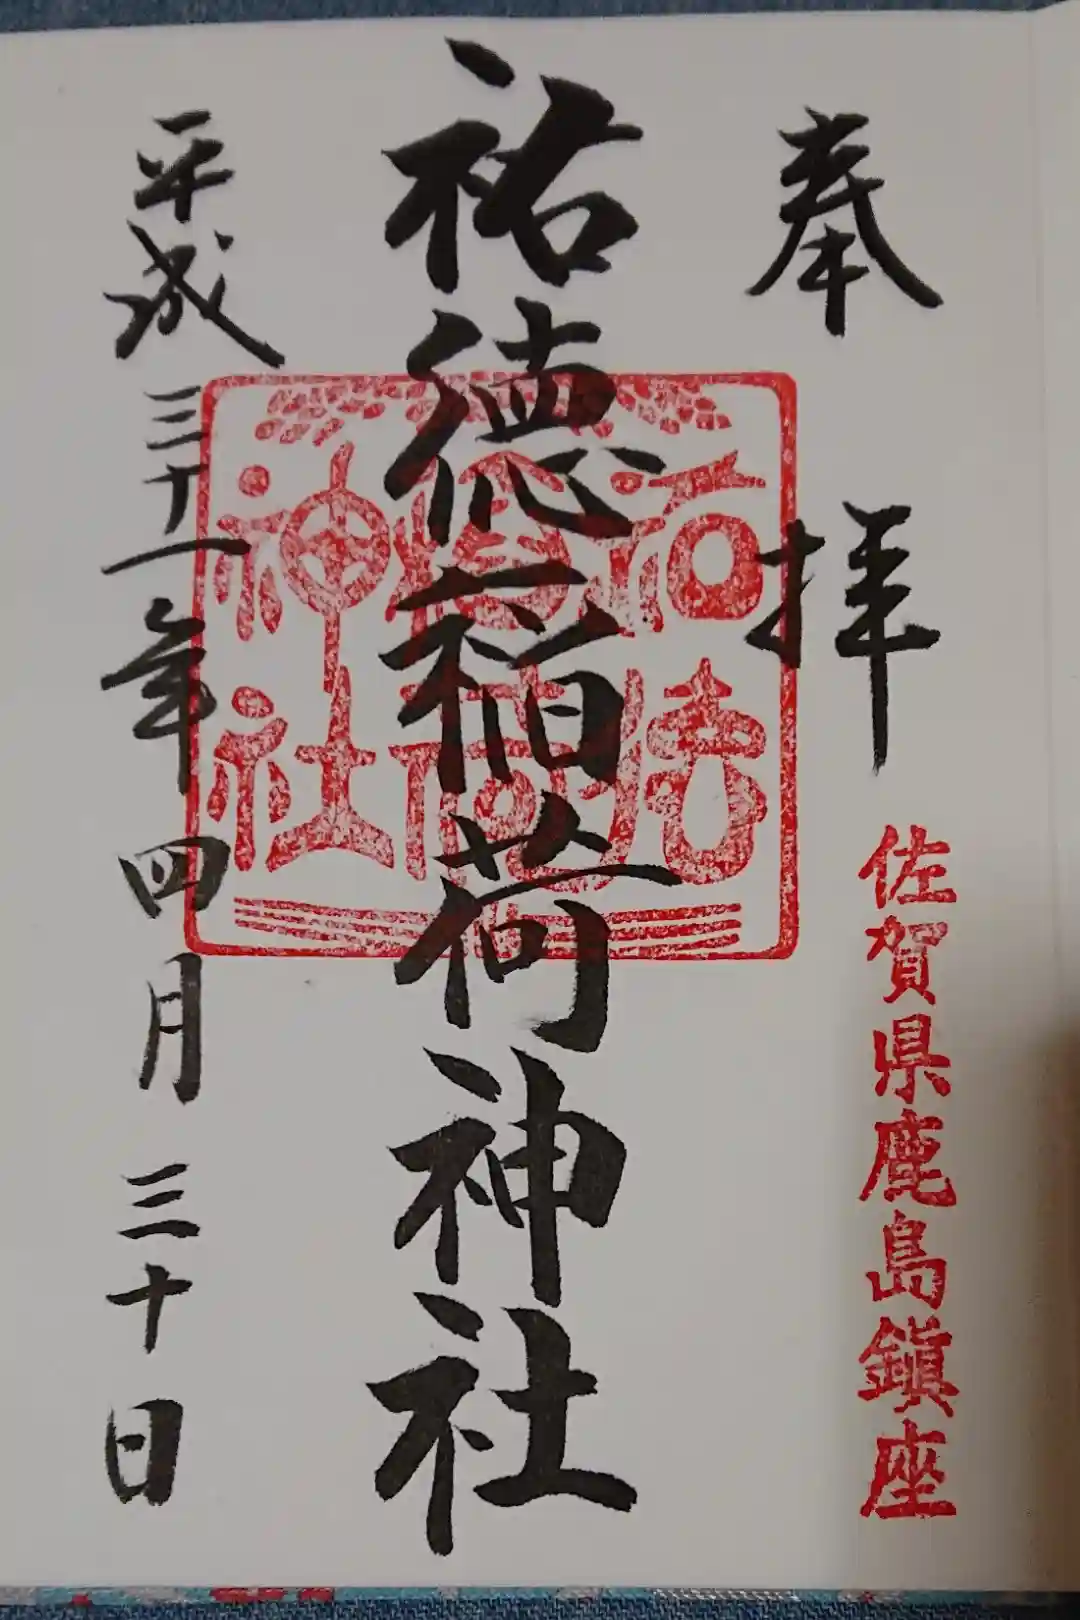 奉拝
佐賀県鹿島鎮座
祐徳稲荷神社
祐徳
稲荷
神社
平成三十一年四月三十日